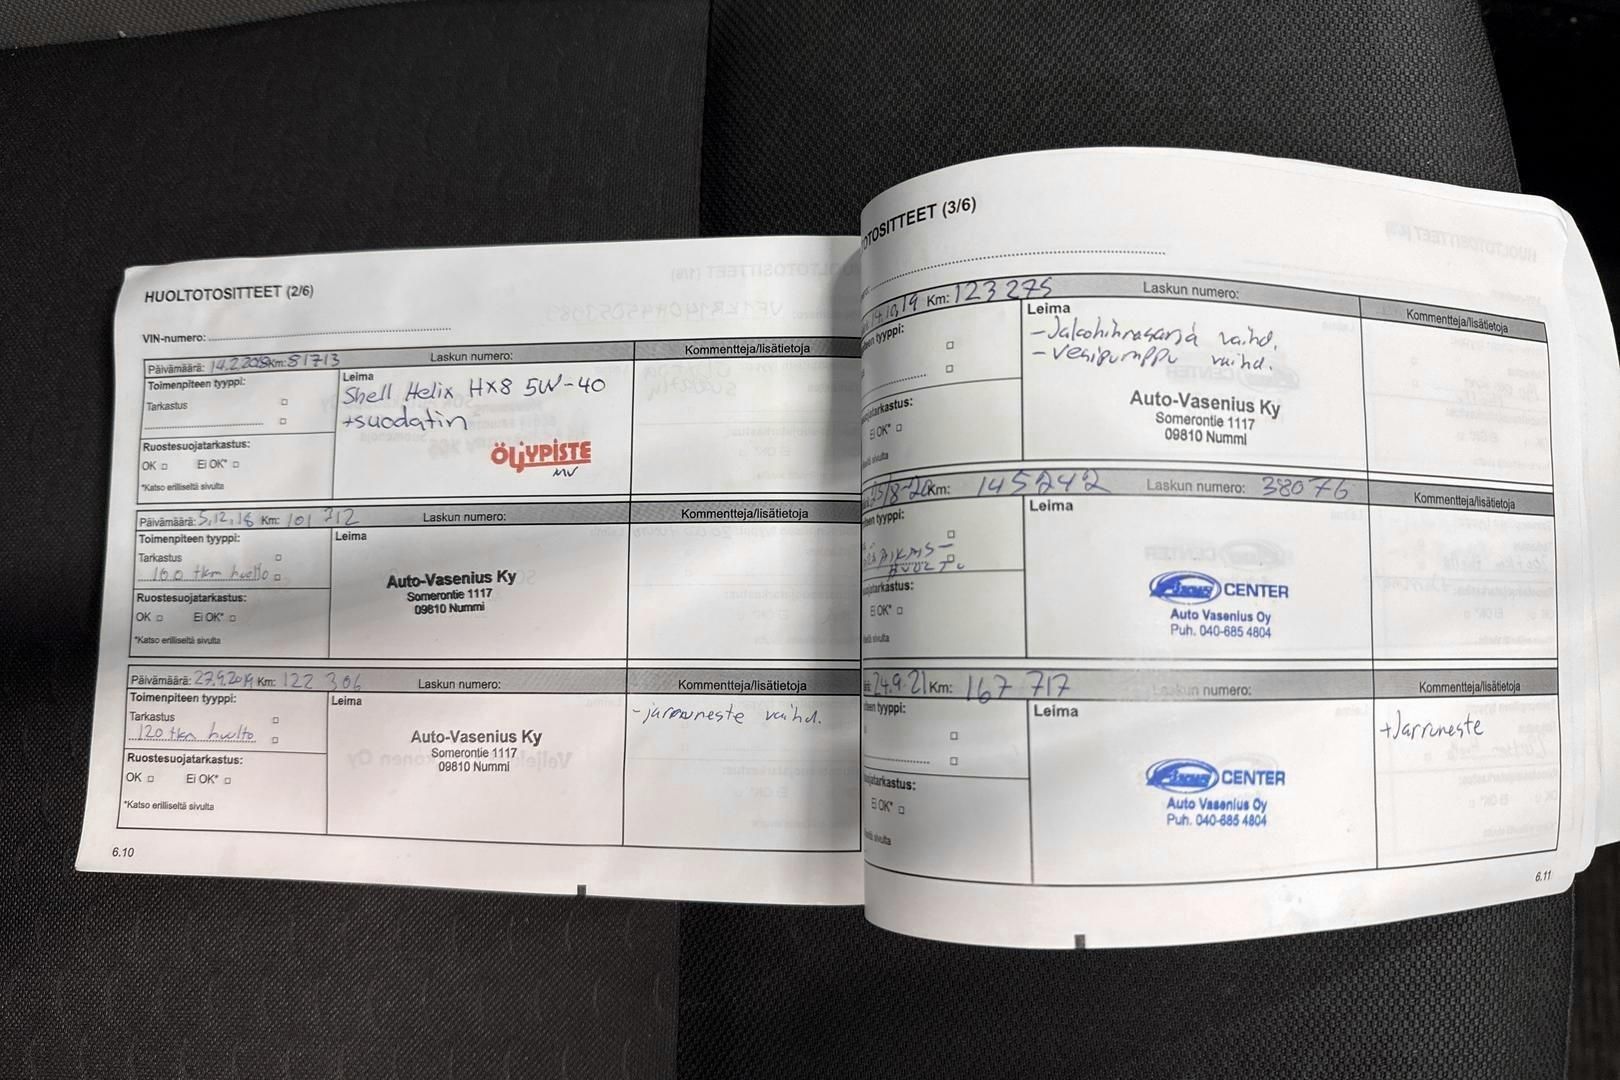 HUOLTOTOSITTEET (2/6)
VIN-numero:
Päivämäärä: 14.2.2018 Km: 81713 Laskun numero: Kommentteja/lisätietoja
Toimenpiteen tyyppi:
Tarkastus
Ruostesuojatarkastus:
OK Ei OK*
*Katso erilliseltä sivulta
Leima
Shell Helix HX8 5W-40
+suodatin
ÖLJYPISTE
MV
Päivämäärä: 5.12.18 Km: 101 712 Laskun numero: Kommentteja/lisätietoja
Toimenpiteen tyyppi:
Tarkastus
100 tkm huolto
Ruostesuojatarkastus:
OK Ei OK*
*Katso erilliseltä sivulta
Leima
Auto-Vasenius Ky
Somerontie 1117
09810 Nummi
Päivämäärä: 27.9.2019 Km: 122 306 Laskun numero: Kommentteja/lisätietoja
Toimenpiteen tyyppi:
Tarkastus
120 tkm huolto
Ruostesuojatarkastus:
OK Ei OK*
*Katso erilliseltä sivulta
Leima
Auto-Vasenius Ky
Somerontie 1117
09810 Nummi
-jarruneste vaihd.
6.10
OTOSITTEET (3/6)
14.10.19 Km: 123 275 Laskun numero: Kommentteja/lisätietoja
teen tyyppi:
jatarkastus:
Ei OK*
Leima
-Jakohihnasarja vaihd.
-vesipumppu vaihd.
Auto-Vasenius Ky
Somerontie 1117
09810 Nummi
25/8-20 Km: 145242 Laskun numero: 38076 Kommentteja/lisätietoja
teen tyyppi:
HUOLTO
ojatarkastus:
Ei OK*
Leima
CENTER
Auto Vasenius Oy
Puh. 040-685 4804
24.9.21 Km: 167 717 Laskun numero: Kommentteja/lisätietoja
teen tyyppi:
ojatarkastus:
Ei OK*
Leima
CENTER
Auto Vasenius Oy
Puh. 040-685 4804
+Jarruneste
6.11